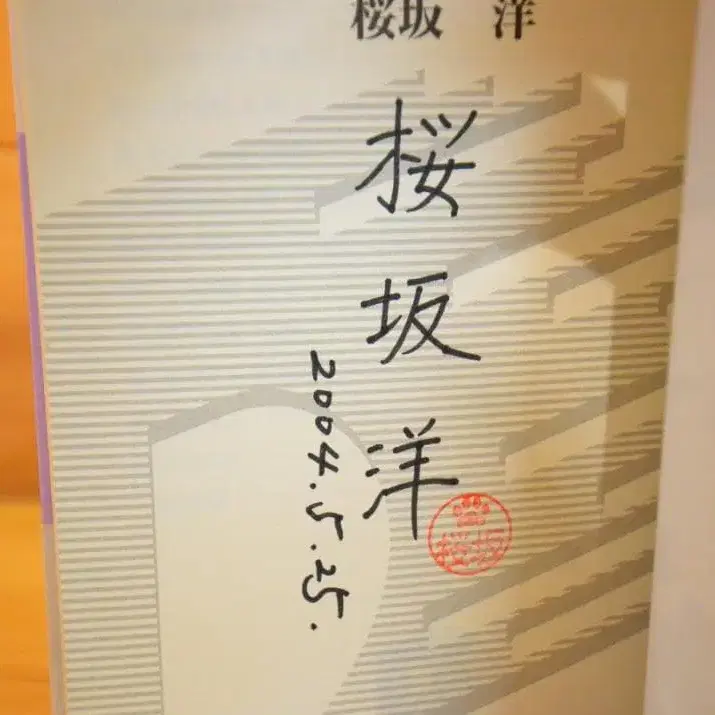 桜坂 洋
桜坂洋
2004.5.25.
桜坂